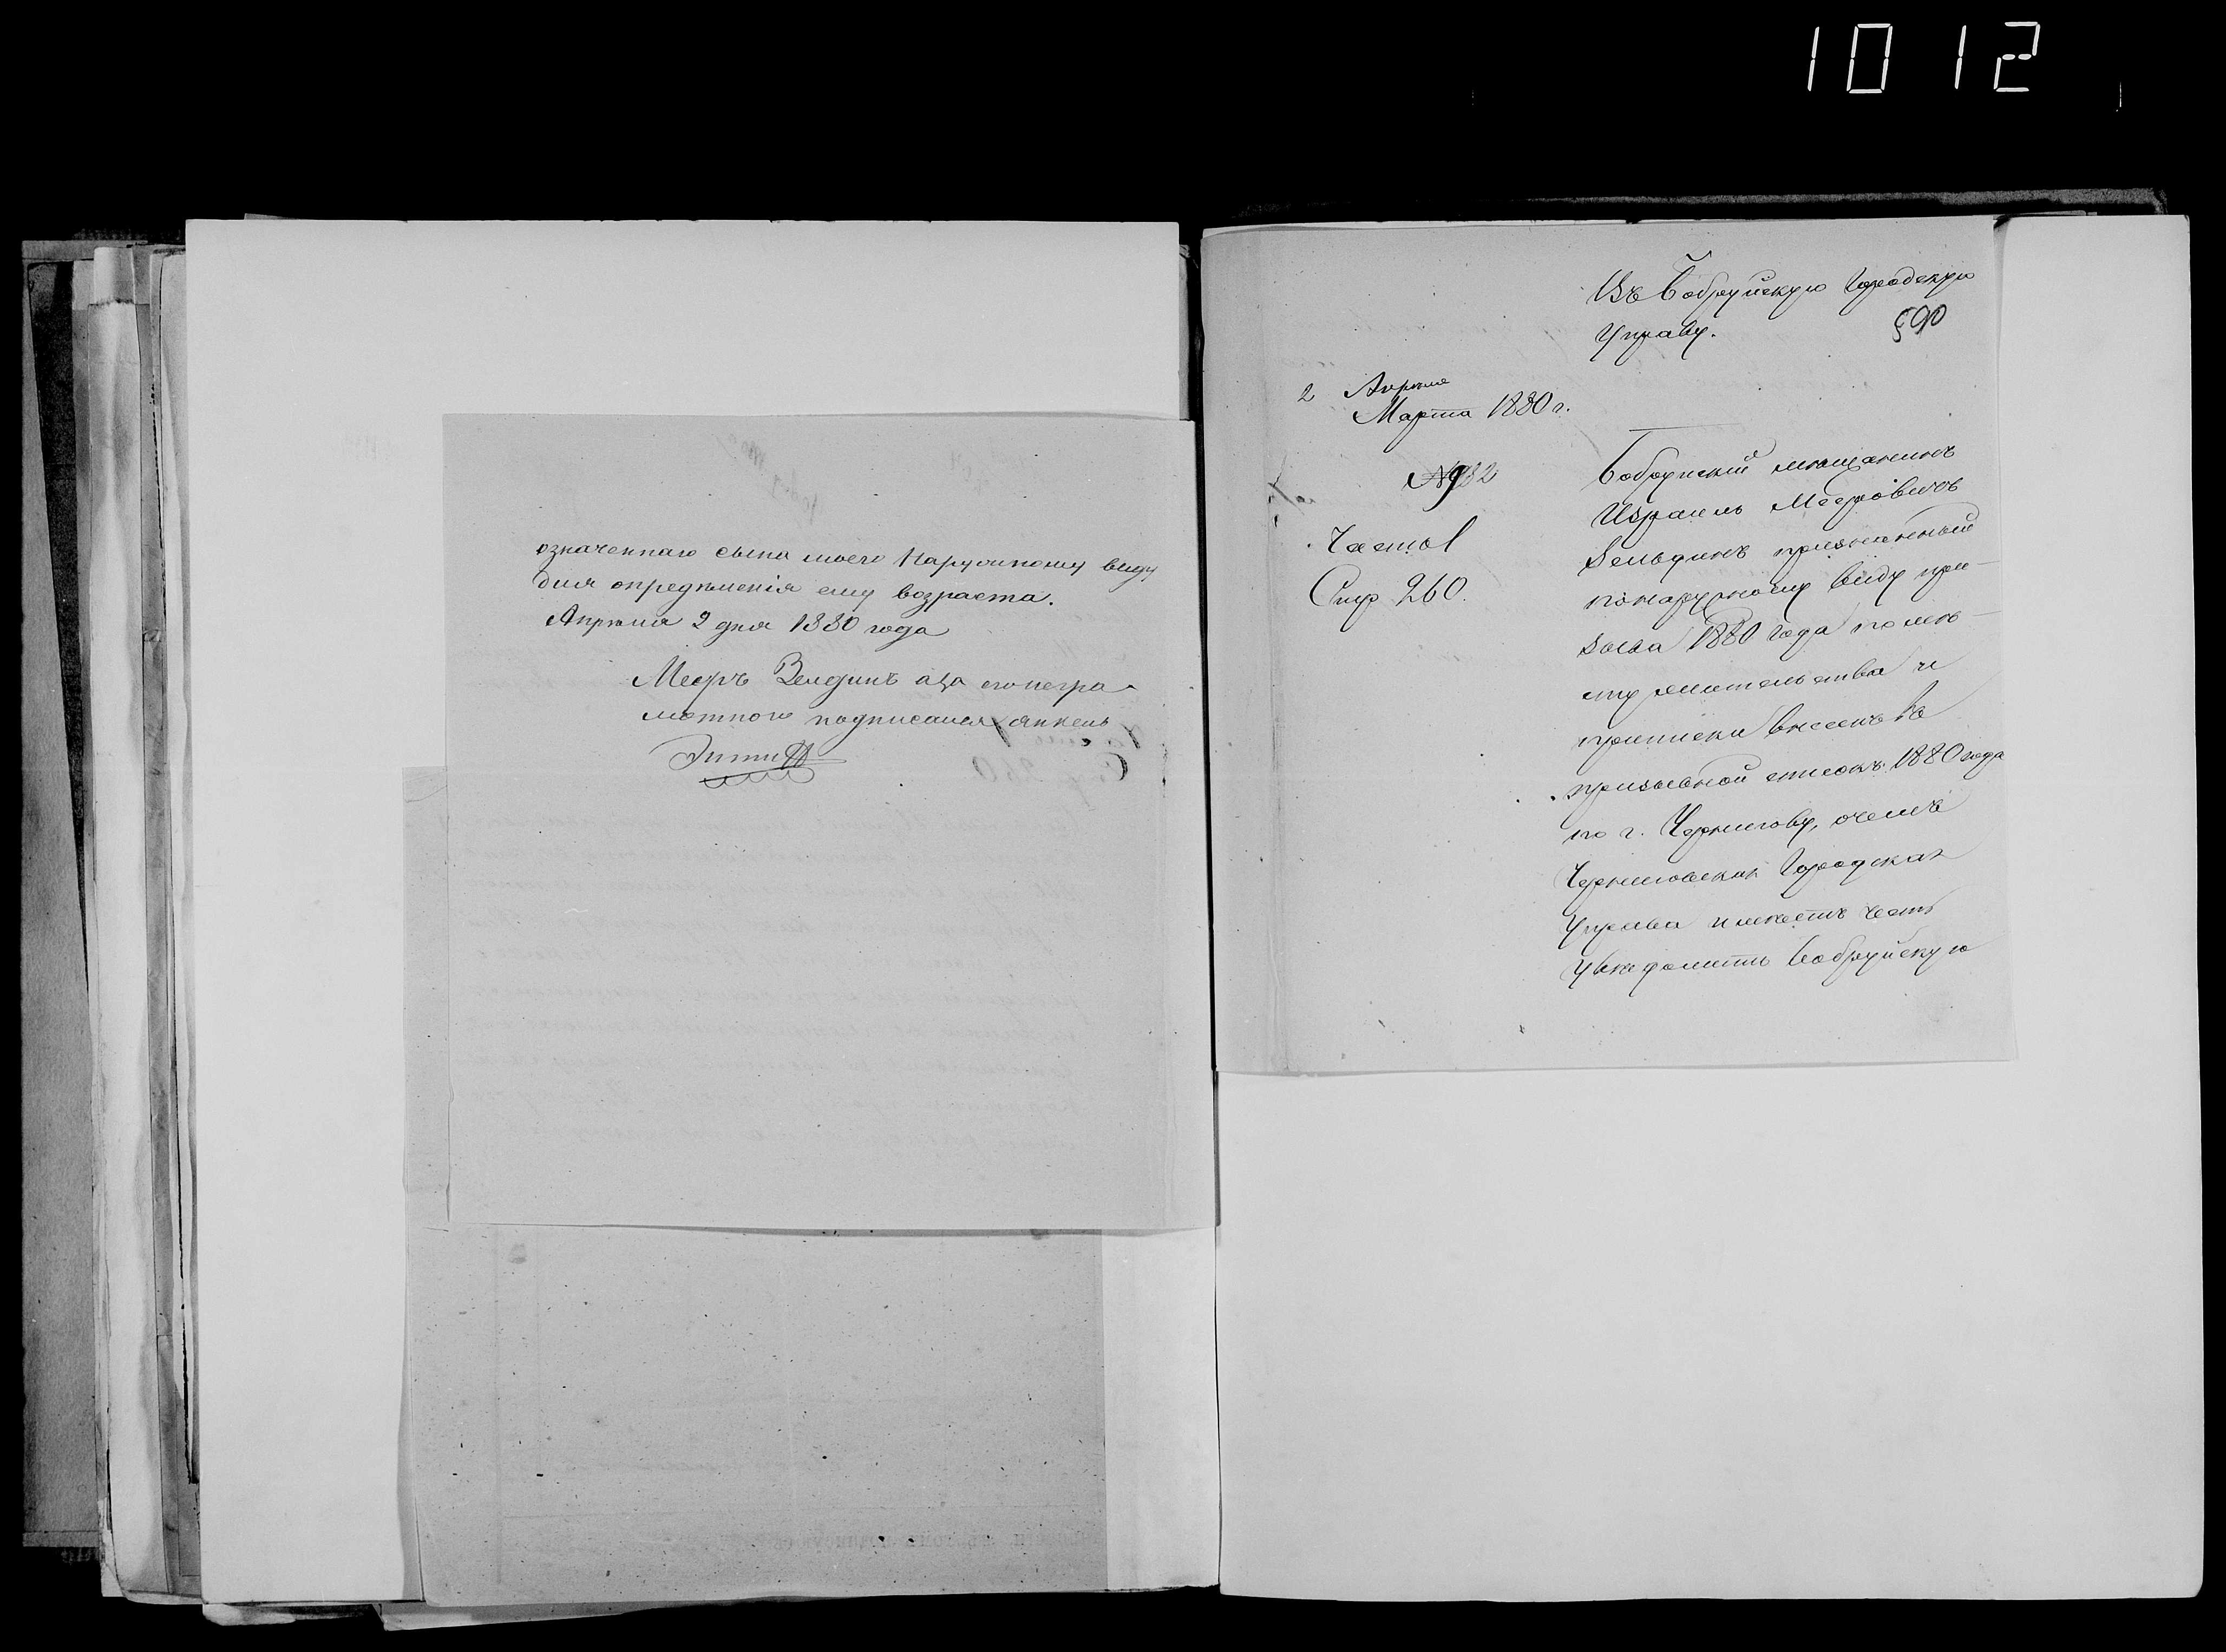 1012
означеннаго сына моего Наружному виду
для опредѣленія ему возраста.
Апрѣля 2 дня 1880 года
Мееръ Зелдинъ аза его негра-
мотного подписался
Въ Бобруйскую Городскую
Управу.
590
2 Апрѣля
Марта 1880 г.
№ 932
Часть I
Стр 260.
Бобруйскій мѣщанинъ
Израиль Мееровичъ
Зельдинъ признанный
по наружному виду при-
зыва 1880 года по мѣ-
сту жительства и
приписки внесенъ въ
призывной списокъ 1880 года
по г. Чернигову, о чемъ
Черниговская Городская
Управа имѣетъ честь
увѣдомить Бобруйскую